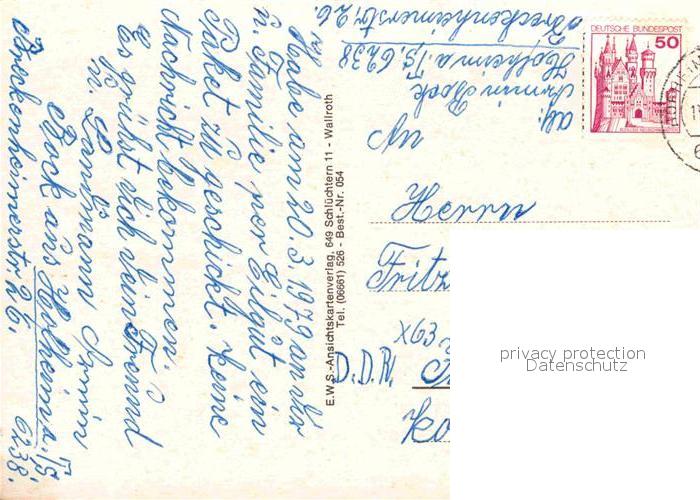 Habe am 20.3.1979 an dir
u. Familie per Eilgut ein
Paket zu geschickt. Keine
Nachricht bekommen.
Es grüßt dich dein Freund
u. Landsmann Armin
Bock aus Hofheim a. Ts.
Breckenheimerstr. 26. 6238.
E.W.S.-Ansichtskartenverlag, 649 Schlüchtern 11 - Wallroth
Tel. (06661) 526 - Best.-Nr. 054
ab:
Armin Bock
Hofheim a. Ts. 6238
Breckenheimerstr. 26.
DEUTSCHE BUNDESPOST
50
An
Herrn
Fritz
X63
D.D.R.
privacy protection
Datenschutz